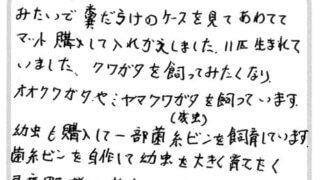 みたいで糞だらけのケースを見てあわてて
マット購入して入れかえしました。11匹生まれて
いました、クワガタを飼ってみたくなり
オオクワガタやミヤマクワガタを飼っています
(成虫)
幼虫も購入して一部菌糸ビンを飼育しています
菌糸ビンを自作して幼虫を大きく育てたく